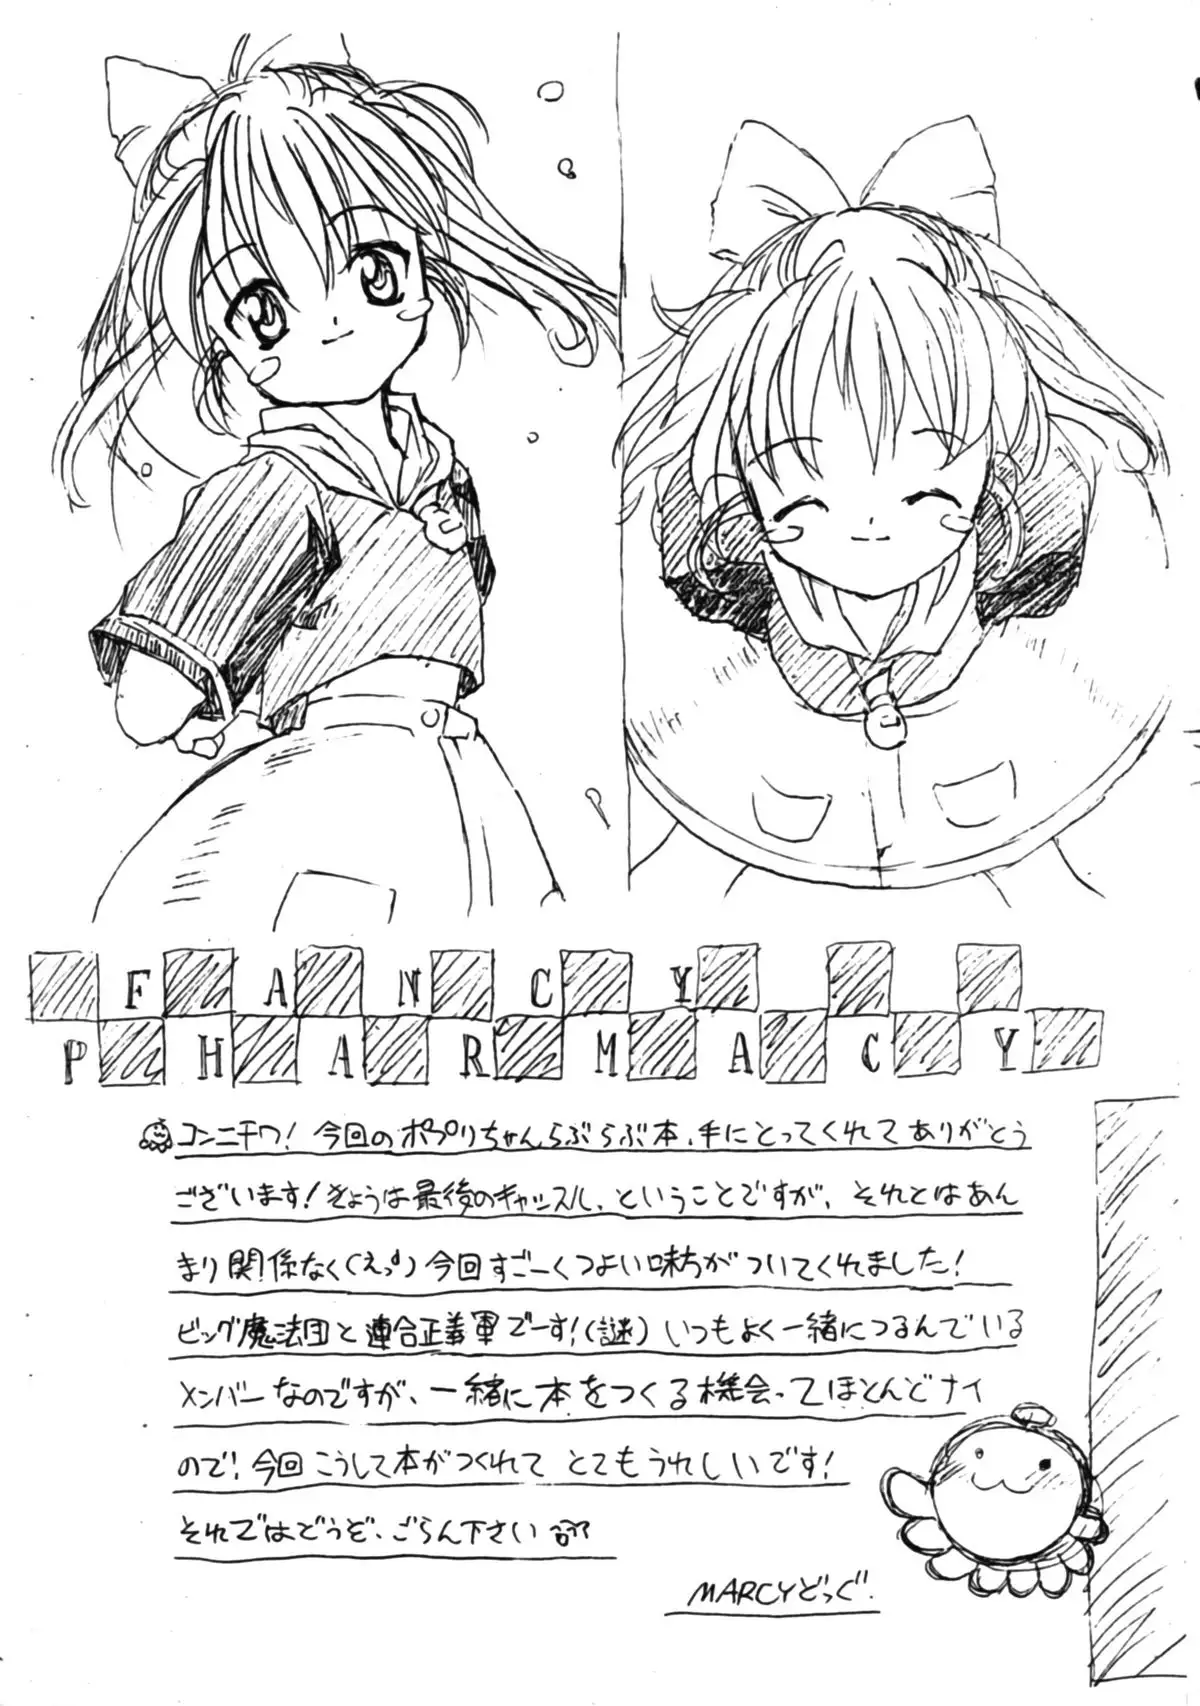 FANCY
PHARMACY
コンニチワ！今回のポプリちゃんらぶらぶ本、手にとってくれてありがとう
ございます！きょうは最後のキャッスル、ということですが、それとはあん
まり関係なく(えっ)今回すごーくつよい味方がついてくれました！
ビッグ魔法団と連合正義軍でーす！(謎)いつもよく一緒につるんでいる
メンバーなのですが、一緒に本をつくる機会ってほとんどナイ
ので！今回こうして本がつくれてとてもうれしいです！
それではどうぞ、ごらん下さい
MARCYどっぐ.